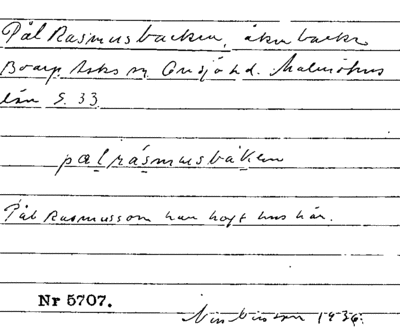 Pål Rasmusbacken, åker backe
Boarp Asks sn Onsjö hd. Malmöhus
län S. 33
pɑlrásmusbáken
Pål Rasmusson han haft hus här.
Nr 5707.
1936.